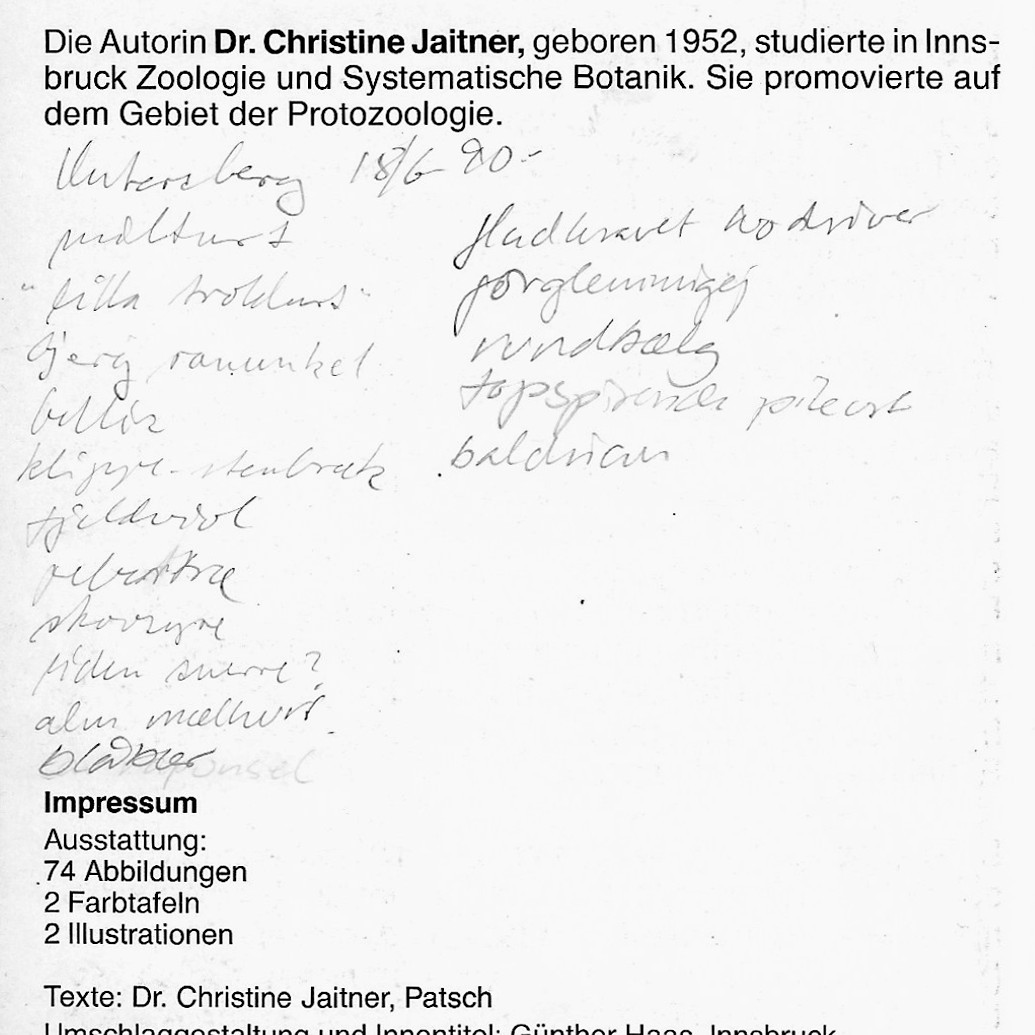 Die Autorin Dr. Christine Jaitner, geboren 1952, studierte in Inns-
bruck Zoologie und Systematische Botanik. Sie promovierte auf
dem Gebiet der Protozoologie.
Untersberg 18/6 90-
målturt
"lilla troldurt"
bjerg ranunkel
bellis
klippe-stenbræk
fjeldviol
skovsyre
liden snerre?
alm mælkurt
blåbær
fladkravet kodriver
forglemmigej
rundbælg
topspirende pileurt
baldrian
Impressum
Ausstattung:
74 Abbildungen
2 Farbtafeln
2 Illustrationen
Texte: Dr. Christine Jaitner, Patsch
Umschlaggestaltung und Innentitel: Günther Haas, Innsbruck